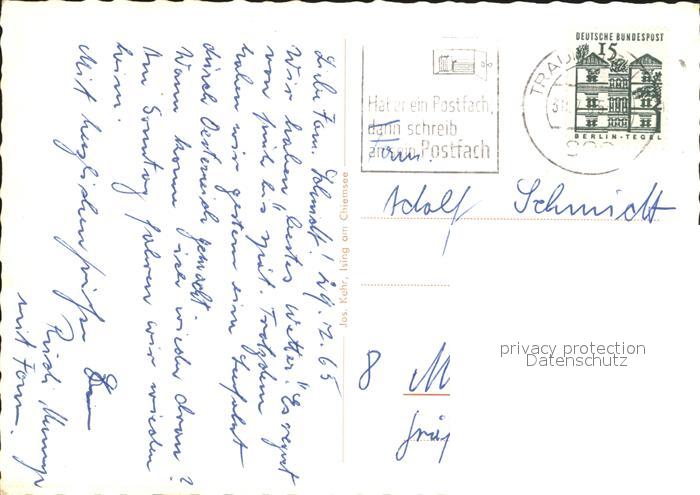 Liebe Fam. Schmidt! 29.7.65
Wir haben "bestes Wetter". Es regnet
von früh bis spät. Trotzdem
haben wir gestern eine
durch Oesterreich gemacht.
Wann kommt ihr wieder dran?
Am Sonntag fahren wir wieder
heim.
Mit herzlichen Grüßen
mit Fam.
Jos. Kehr, Ising am Chiemsee
Hat er ein Postfach,
dann schreib
an sein Postfach
DEUTSCHE BUNDESPOST
15
BERLIN-TEGEL
TRAU
Fam.
Adolf Schmidt
8 M
privacy protection
Datenschutz